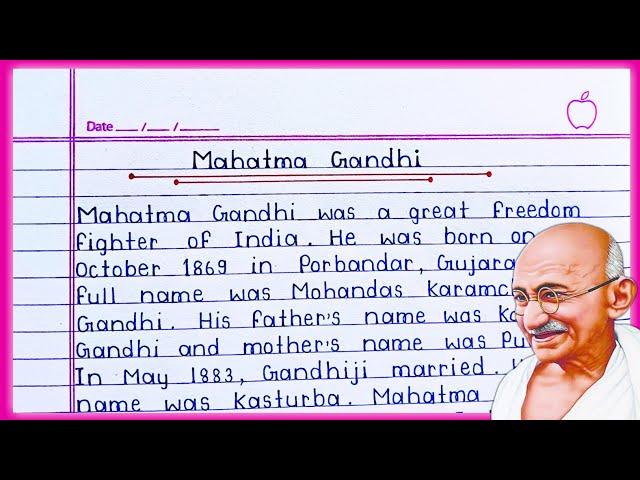 Date ___ / ___ / _____
Mahatma Gandhi
Mahatma Gandhi was a great freedom
fighter of India. He was born on
October 1869 in Porbandar,
full name was Mohandas
Gandhi. His father's name was
Gandhi and mother's name was
In May 1883, Gandhiji married.
name was Kasturba. Mahatma